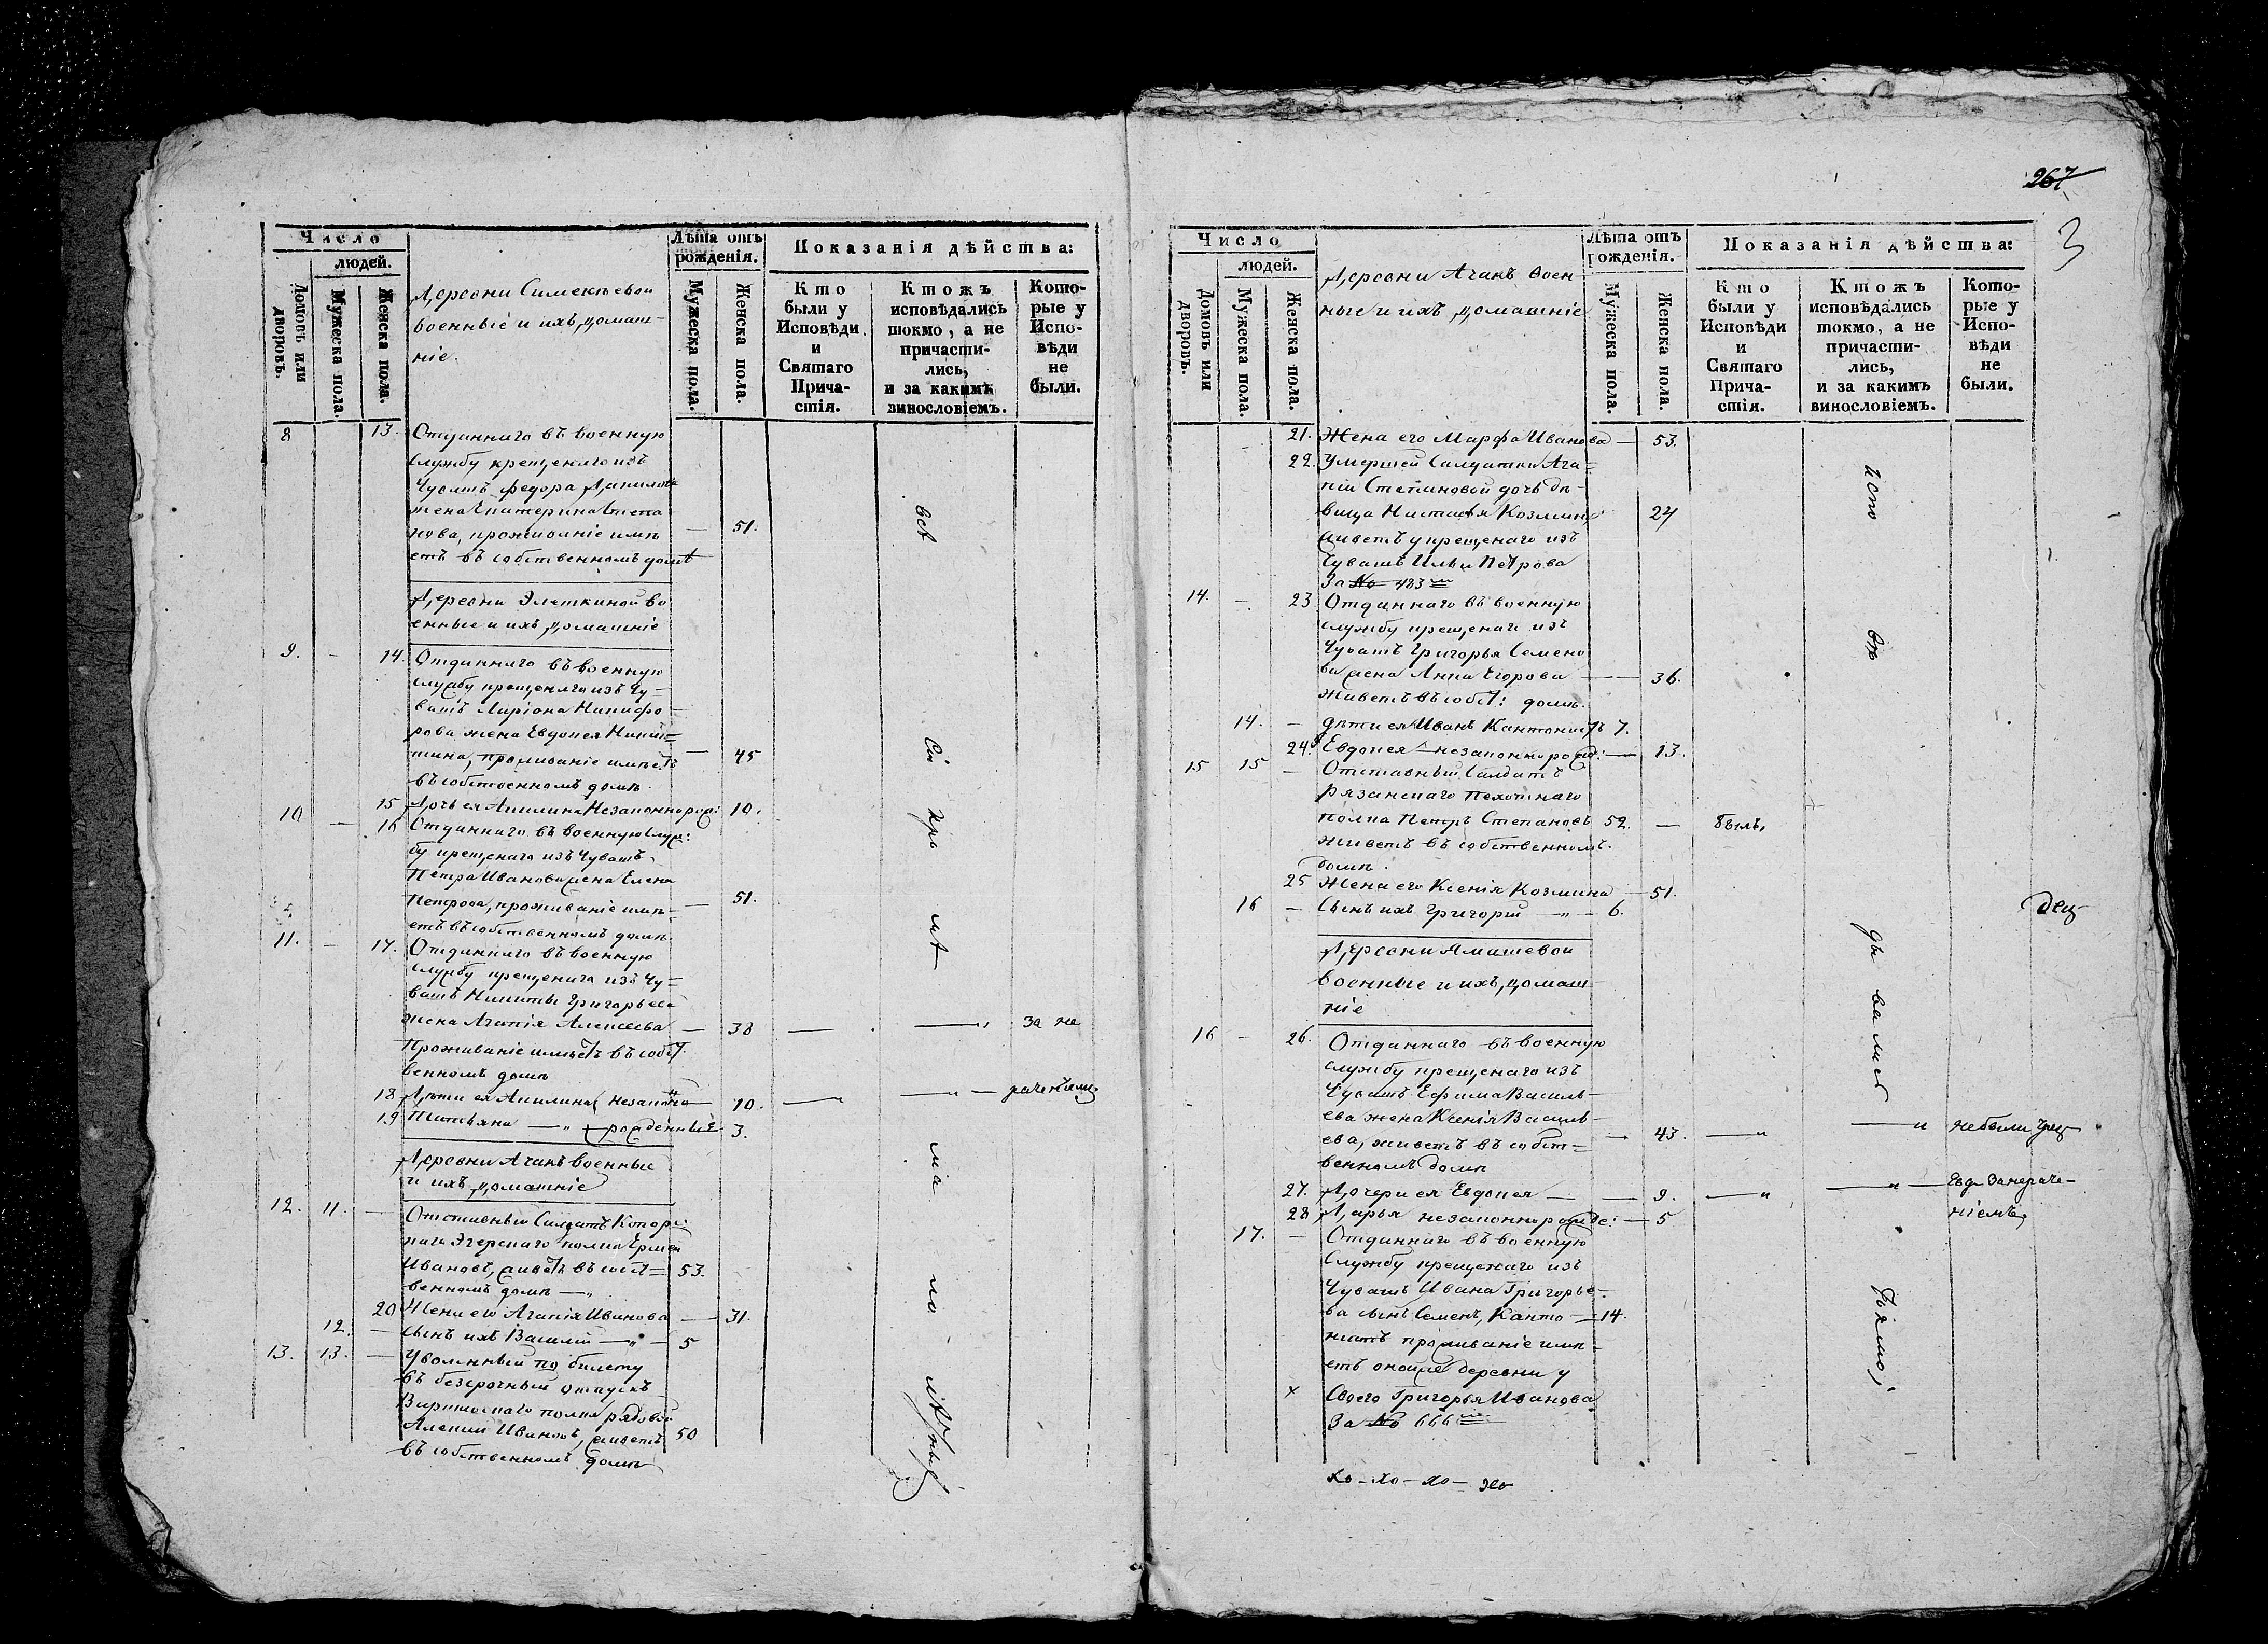 Число
людей.
Домовъ или дворовъ.
Мужеска пола.
Женска пола.
Деревни Симекѣевой
военныѣ и ихъ домаш-
ніе.
Лѣта отъ рожденія.
Мужеска пола.
Женска пола.
Показанія дѣйства:
Кто были у Исповѣди и Святаго Причастія.
Ктожъ исповѣдались токмо, а не причастились, и за какимъ винословіемъ.
Которые у Исповѣди не были.
8 13. Отданнаго въ военную
службу крещенаго изъ
Чувашъ Федора Данилова
жена Екатерина Степа
нова, проживаніе имѣ — 51.
етъ въ собственномъ домѣ
Деревни Элеткиной во
енные и ихъ домашніе
9. — 14. Отданнаго въ военную
службу крещенаго изъ Чу-
вашъ Ларіона Никифо-
рова жена Евдокея Ники=
тина, проживаніе имѣетъ — 45
въ собственномъ домѣ.
15 Дочь ея Акилина Незаконнорож: 10.
10 — 16 Отданнаго въ военную служ:
бу крещенаго изъ Чувашъ
Петра Иванова жена Елена
Петрова, проживаніе имѣ- — 51.
етъ въ собственномъ домѣ.
11. — 17. Отданнаго въ военную
службу крещенаго изъ Чу=
вашъ Никиты Григорьева
жена Агапія Алексѣева — 38 — — за не
Проживаніе имѣетъ въ собст.
венномъ домѣ
18 Дѣти ея Акилина незаконно — 10. — „ — рачен
19 Татьяна — „ рожденныѣ 3.
Деревни Ачакъ военные
и ихъ домашніе
12. 11. — Отставный Салдатъ Копорс:
каго Эгерскаго полка Ермей
Ивановъ, живетъ въ собст= 53.
венномъ домѣ — „
20 Жена его Агапія Иванова — 31.
12. — Сынъ ихъ Василій — „ — 5
13. 13. — Уволенный по билету
въ безсрочный отпускъ
полка рядовой
Алексій Ивановъ, живетъ 50
въ собственномъ домѣ
всѣ
267
3
Число
людей.
Домовъ или дворовъ.
Мужеска пола.
Женска пола.
Деревни Ачакъ воен-
ные и ихъ домашніе
Лѣта отъ рожденія.
Мужеска пола.
Женска пола.
Показанія дѣйства:
Кто были у Исповѣди и Святаго Причастія.
Ктожъ исповѣдались токмо, а не причастились, и за какимъ винословіемъ.
Которые у Исповѣди не были.
— 21. Жена его Марфа Иванова — 53.
22. Умершей Салдатки Ага=
піи Степановой дочь дѣ-
вица Настасья Козмина 27
живетъ у крещенаго изъ
Чувашъ Ильи Петрова
За № 483
14. — 23. Отданнаго въ военную
службу крещенаго изъ
Чувашъ Григорья Семено
ва жена Анна Егорова — 36.
живетъ въ собст: домѣ.
14. — дѣти ея Иванъ Кантонистъ 7.
24. Евдокея — незаконнорожд: — 13.
15 15 — Отставный Салдатъ
Рязанскаго Пехотнаго
полка Петръ Степановъ 52. — былъ,
живетъ въ собственномъ
домѣ.
25 Жена его Ксенія Козмина — 51.
16 — Сынъ ихъ Григорій — „ — 6.
Деревни Ямашевой
военные и ихъ домаш-
ніе
16 — 26. Отданнаго въ военную
службу крещенаго изъ
Чувашъ Ефима Василь-
ева жена Ксенія Василь-
ева, живетъ въ собст= — 43. — „ — „ небыли
венномъ домѣ
27. Дочери ея Евдокея — — 9. — „ — „ — Занераче-
28 Дарья незаконнорожде: — 5 ніемъ,
17. — Отданнаго въ военную
службу крещенаго изъ
Чувашъ Ивана Григорье-
ва сынъ Семенъ, Канто — 14.
нистъ проживаніе имѣ-
етъ оной деревни у
х своего Григорья Иванова
За № 666